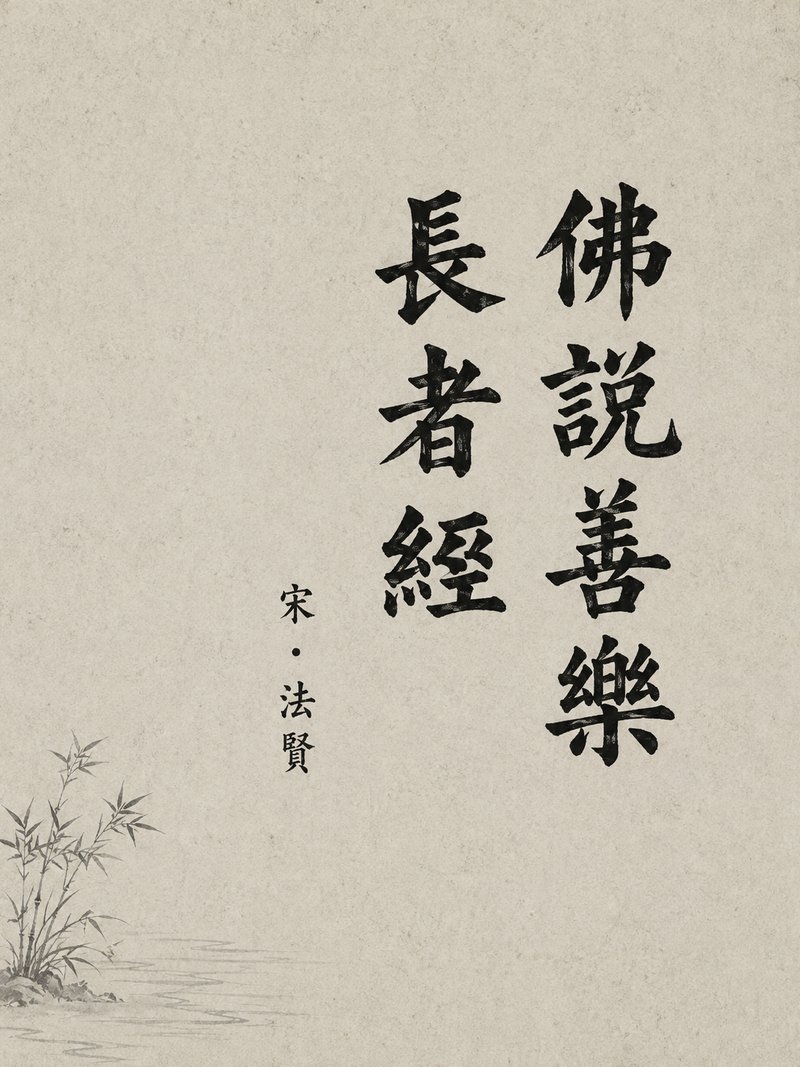 佛説善樂
長者經
宋・法賢